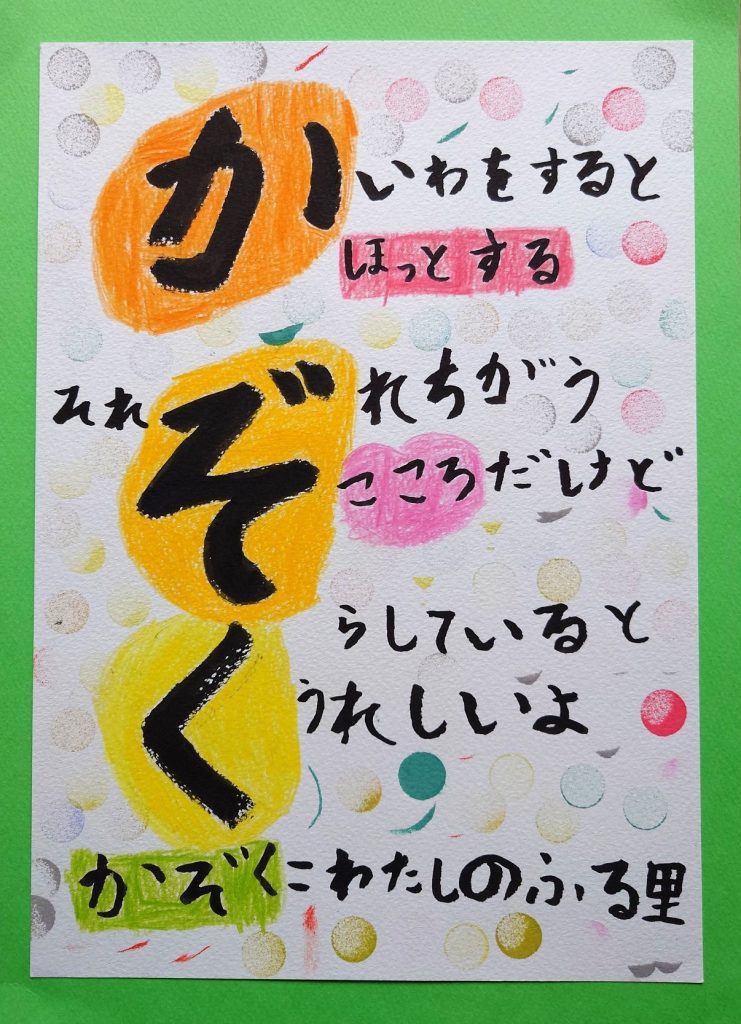 かいわをすると
ほっとする
それぞれちがう
こころだけど
くらしていると
うれしいよ
かぞくこわたしのふる里